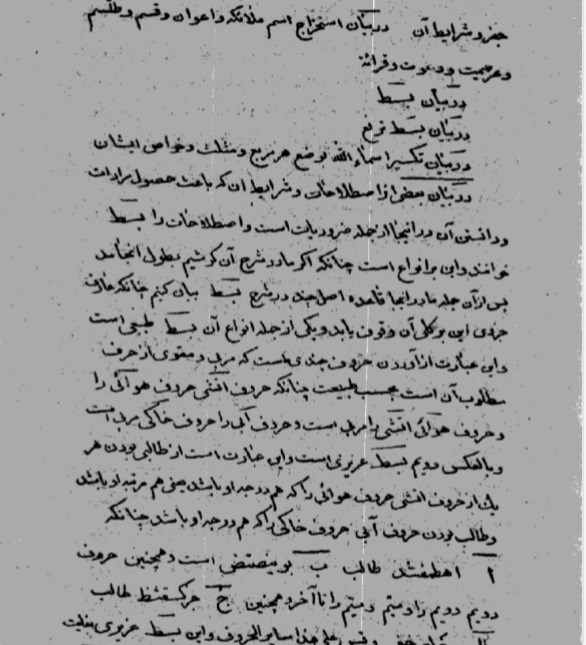 جفر و شرایط آن دربیان استخراج اسم ملائکه و اعوان و قسم و طلسم
و عزیمت و دعوت و قرائة
دربیان بسط
دربیان بسط ترفع
دربیان تکسیر اسماء الله بوضع هر مربع و مثلث و خواص ایشان
دربیان بعضی از اصطلاحات و شرایط آن که باعث حصول مرادات
و دانستن آن در اینجا از جمله ضروریات است و اصطلاحات را بسط
خوانند و این بر انواع است چنانکه اگر ما در شرح آن کوشیم بطول انجامد
پس از آن جمله ما در اینجا قاعده اصل چند در شرح بسط بیان کنیم چنانکه
جزوی این بر کلی آن وقوف یابد و یکی از جمله انواع آن بسط طبیعی است
و این عبارت از آوردن حروف چندی است که مربی و مقوی از حرف
مطلوب آن است بحسب طبیعت چنانکه حروف آتشی حروف هوائی را
و حروف هوائی آتشی را مربی است و حروف آبی را حروف خاکی مربی است
و بالعکس دویم بسط عزیزی است و این عبارت است از طالب بودن هر
یک از حروف آتشی حروف هوائی را که هم درجه او باشد یعنی هم مرتبه او باشد
و طالب بودن حروف آبی حروف خاکی را که هم درجه او باشد چنانکه
ا اهطمفشذ طالب ب بوینصتض است و همچنین حروف
دویم دویم را و سیّم و سیّم را تا آخر و همچنین ج جزکسقثظ طالب
سایر الحروف و این بسط عزیزی بغایت